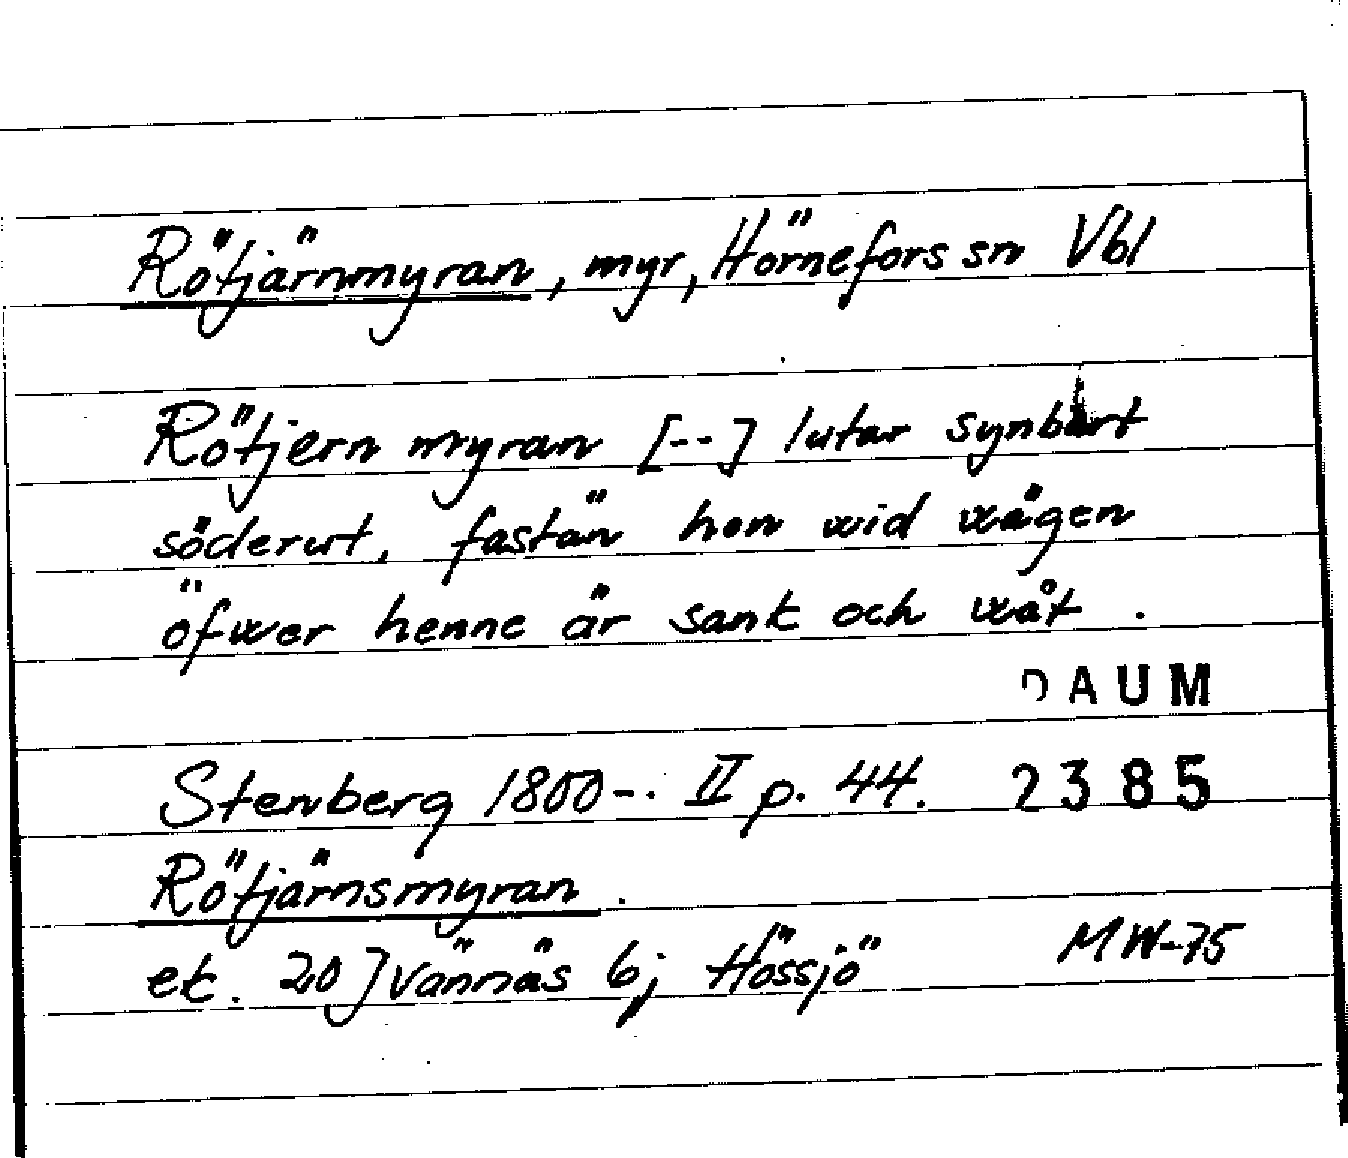 Rötjärnmyran, myr, Hörnefors sn Vbl
Rötjern myran [--] lutar synbart
söderut, fastän hon wid wägen
öfwer henne är sank och wåt.
DAUM
Stenberg 1800-. II p. 44. 2385
Rötjärnsmyran.
ek. 20J Vännäs bj Hössjö MW-75